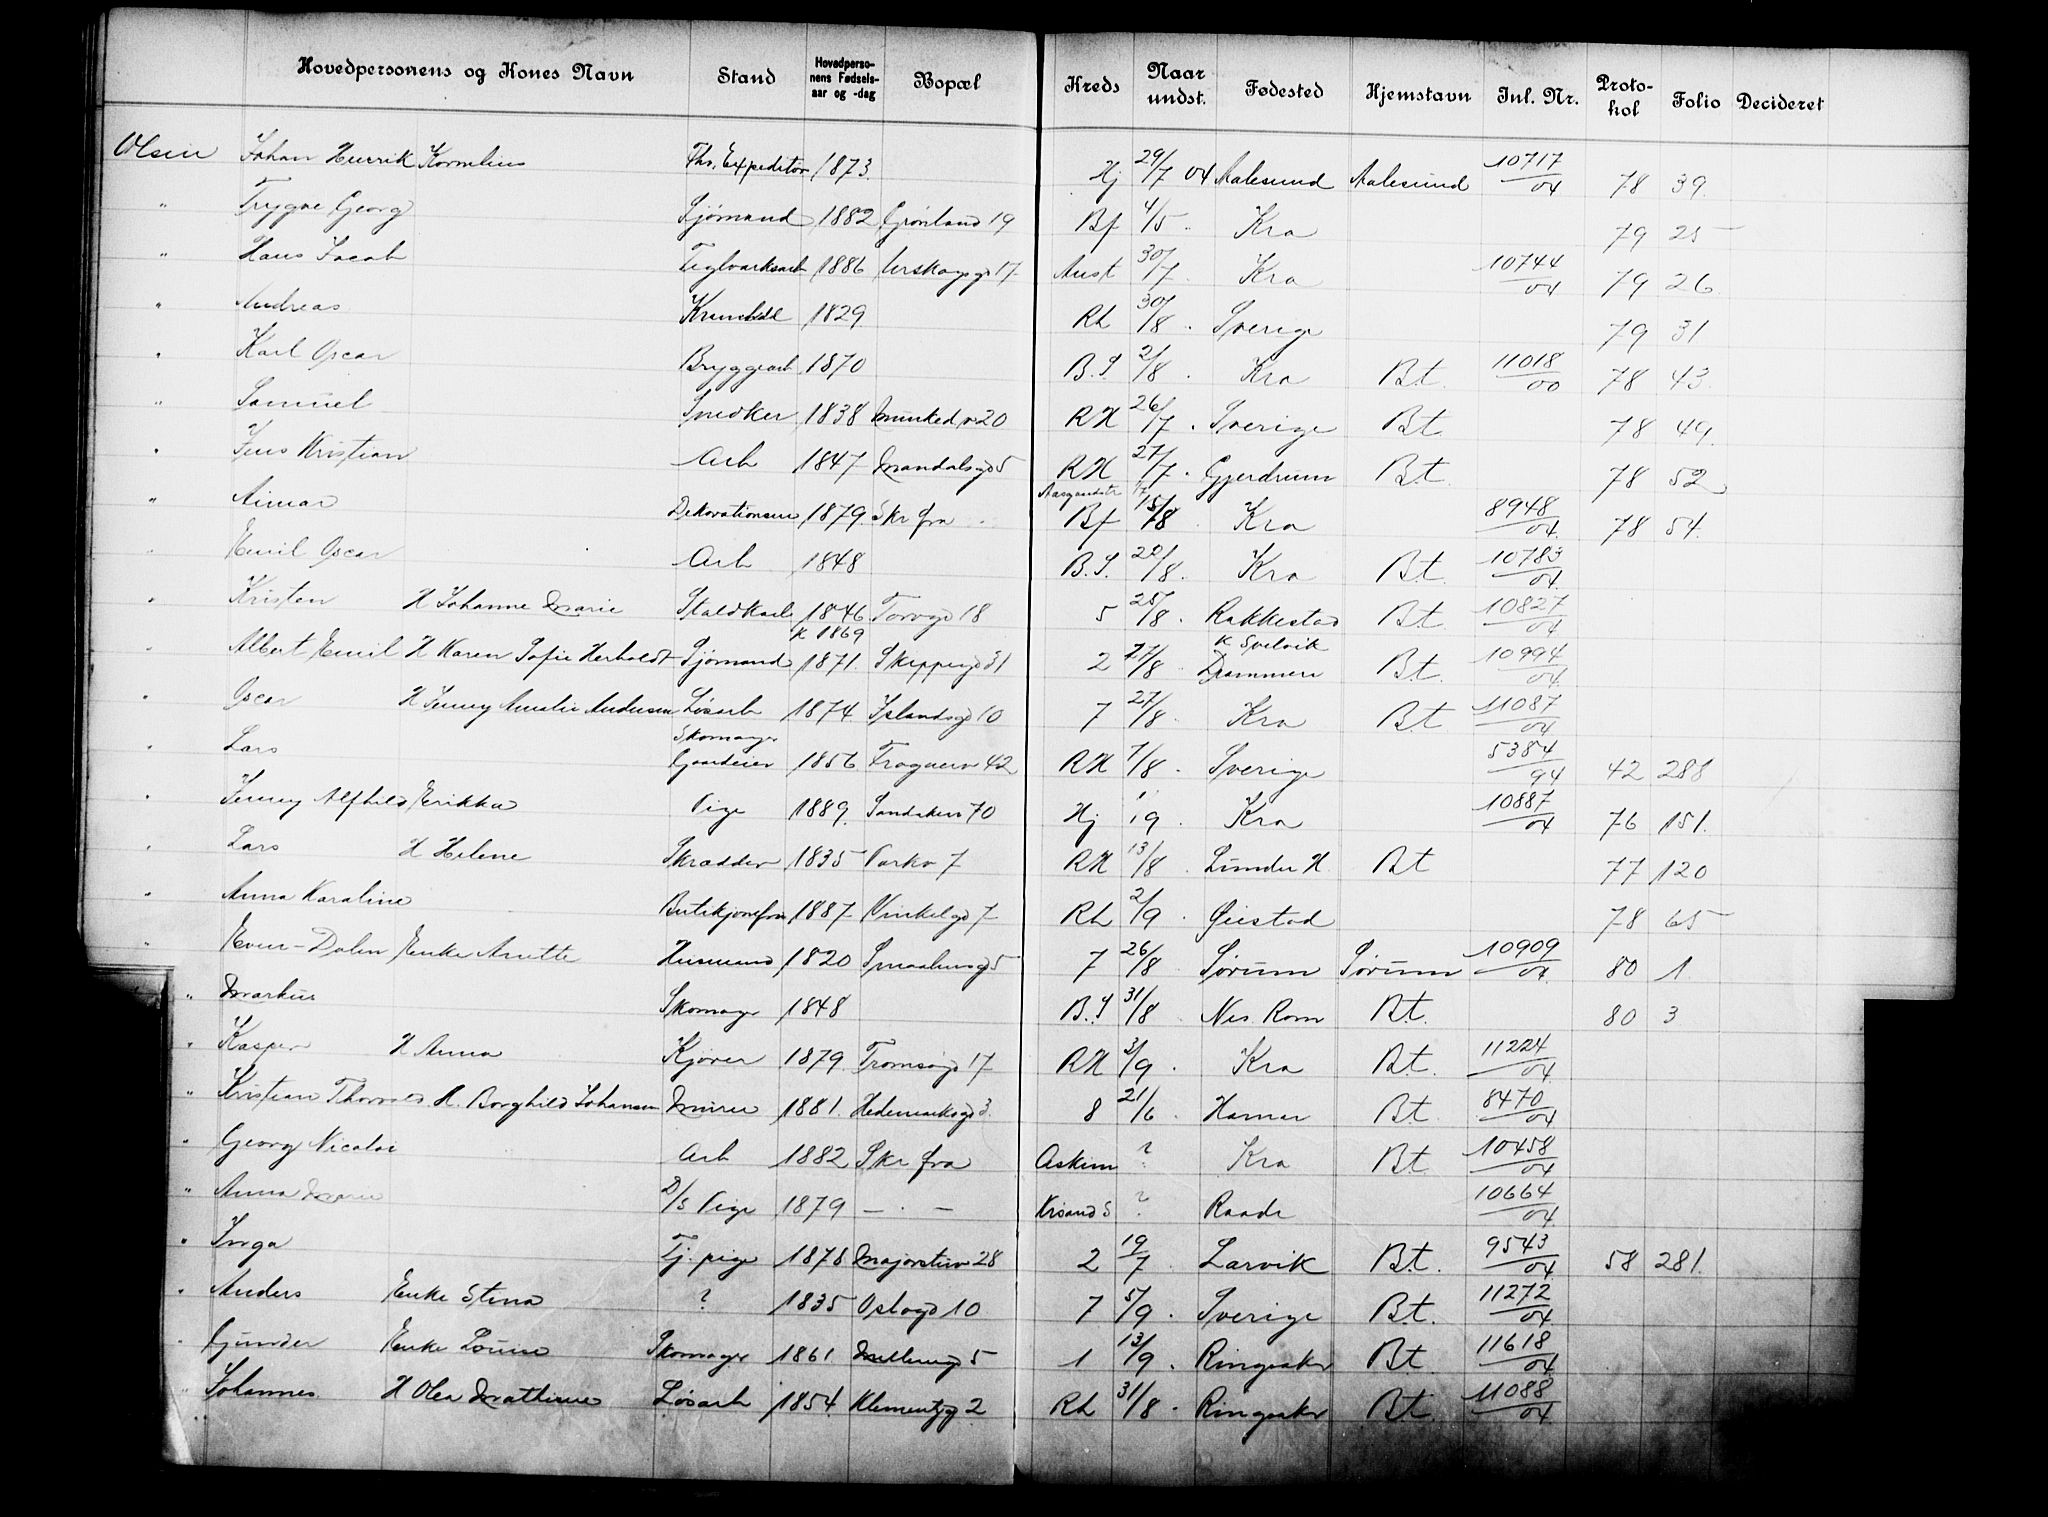 Hovedpersonens og Kones Navn Stand Hovedpersonens Fødselsaar og -dag Bopæl Kreds Naar undst. Fødested Hjemstavn Inl. Nr. Protokol Folio Decideret
Olsen Johan Henrik Kornelius Ths. Expeditør 1873. Hj 29/7 04 Aalesund Aalesund 10717/04 78 39.
" Trygve Georg Sjømand 1882 Grønland 19 Bf 4/5 . Kra 79 25
" Hans Jacob Teglverksarb 1886 Urskougsgd 17 Aust 30/7 . Kra 10744/04 79 26.
" Andreas 1829 Rh 30/8 . Sverige 79 31
" Karl Oscar Bryggearb 1870 B.S 2/8 . Kra Bt. 11018/00 78 43.
" Samuel Snedker 1838 Munked v 20 RH 26/7 . Sverige Bt. 78 49.
" Jens Kristian Arb 1847 Mandalsgd 5 RH 27/7 . Gjerdrum Bt. 78 52
" Aimar 1879 Skr fra . Bf 15/8 Kra 8948/04. 78 54.
" Emil Oscar Arb 1848 B.S. 20/8. Kra Bt. 10783/04.
" Kristen H Johanne Marie Staldkarl 1846 Torvgd 18 5 25/8 . Rakkestad Bt. 10827/04
" Albert Emil H Karen Sofie Herholdt Sjømand K 1869 1871. Skippergd 31 2 27/8 . K Svelvik Drammen Bt. 10994/04.
" Oscar H Jenny Amalie Andersen Løsarb 1874 Islandsgd 10 7 27/8 . Kra Bt 11087/04
" Lars Skomager Gaardeier 1856 Frognerv 42 RH 7/8 . Sverige 5384/94 42 288
" Jenny Alfhild Erikka Pige 1889. Sandakerv 70 Hj 1/9 . Kra 10887/04 76 151.
" Lars H Helene Skrædder 1835 Parkv 7 RH 13/8 . Lunder H. Bt 77 120
" Anna Karoline 1887 Vinkelgd 7 Rh 2/9 . Øiestad 78 65
" Even-Dalen Enke Anette Husmand 1820 Smaalensgd 5 7 26/8 . Sørum Sørum 10909/04. 80 1
" Markus Skomager 1848 B.S 31/8 . Nes Rom Bt. 80 3
" Kasper H Anna Kjører 1879. Tromsøgd 17 RH 3/9 . Kra Bt. 11224/04.
" Kristian Thorvald H. Borghild Johansen Murer 1881. Hedemarksgd 3. 8 21/6 . Hamar Bt. 8470/04
" Georg Nicolai Arb 1882 Skr fra Askim ? Kra Bt 10458/04
" Anna Marie D/S Pige 1879 — . — Krsand S ? Raade 10664/04.
" Inga Tj. pige 1878 Majorstuv 28 2 19/7 . Larvik Bt. 9543/04. 58 281.
" Anders Enke Stina ? 1835 Oslogd 10 7 5/9 . Sverige Bt. 11272/04.
" Gunder Enke Louise Skomager 1861 Møllergd 5 1 13/9 . Ringsaker Bt. 11618/04.
" Johannes H Olea Mathisne Løsarb 1854. Klementsgd 2 Rh 31/8 . Ringsaker Bt. 11088/04.